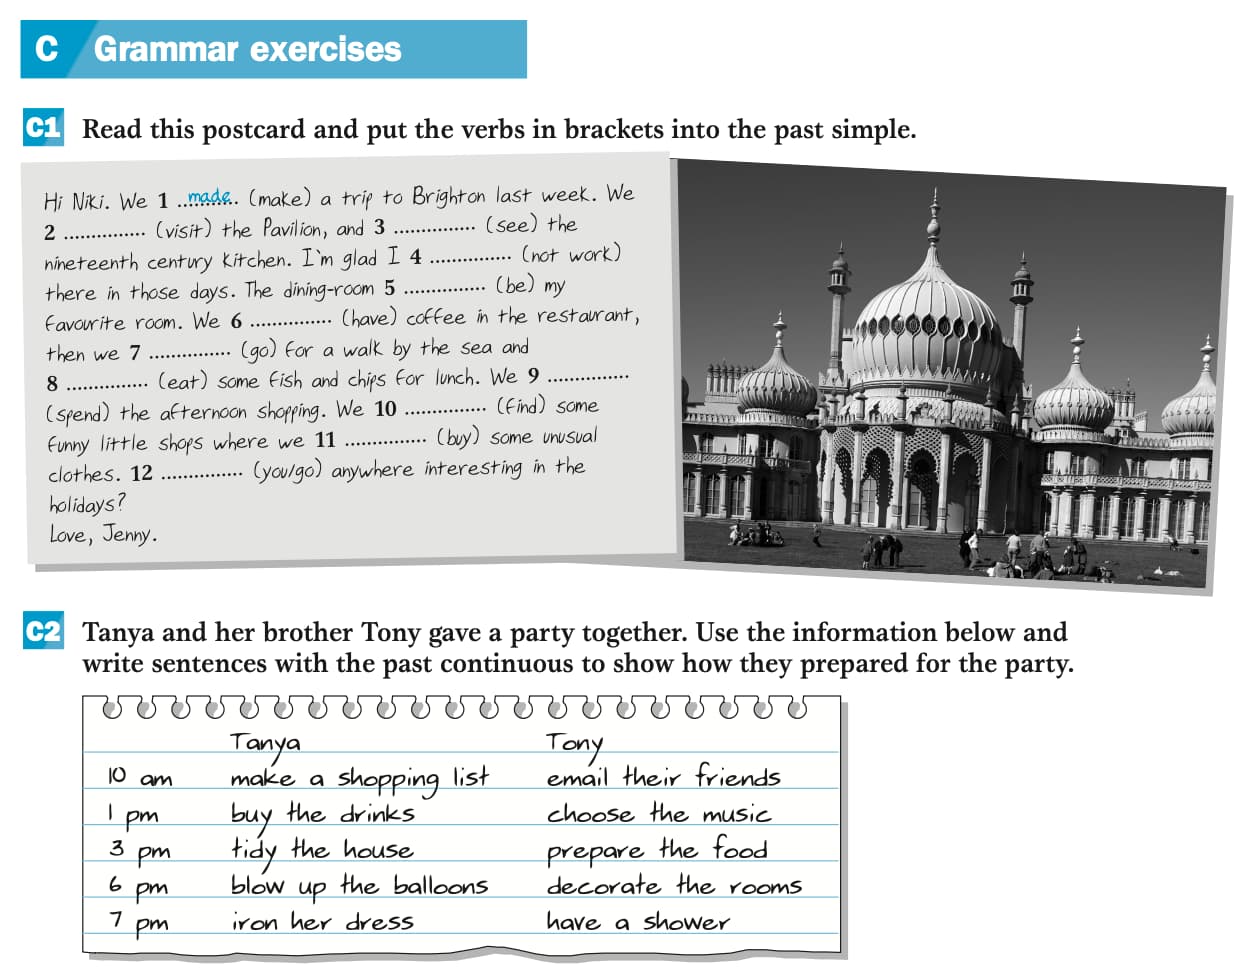 C Grammar exercises
C1 Read this postcard and put the verbs in brackets into the past simple.
Hi Niki. We 1 ..made.. (make) a trip to Brighton last week. We
2 ............... (visit) the Pavilion, and 3 ............... (see) the
nineteenth century kitchen. I'm glad I 4 ............... (not work)
there in those days. The dining-room 5 ............... (be) my
favourite room. We 6 ............... (have) coffee in the restaurant,
then we 7 ............... (go) for a walk by the sea and
8 ............... (eat) some fish and chips for lunch. We 9 ...............
(spend) the afternoon shopping. We 10 ............... (find) some
funny little shops where we 11 ............... (buy) some unusual
clothes. 12 ............... (you/go) anywhere interesting in the
holidays?
Love, Jenny.
C2 Tanya and her brother Tony gave a party together. Use the information below and
write sentences with the past continuous to show how they prepared for the party.
Tanya Tony
10 am make a shopping list email their friends
1 pm buy the drinks choose the music
3 pm tidy the house prepare the food
6 pm blow up the balloons decorate the rooms
7 pm iron her dress have a shower